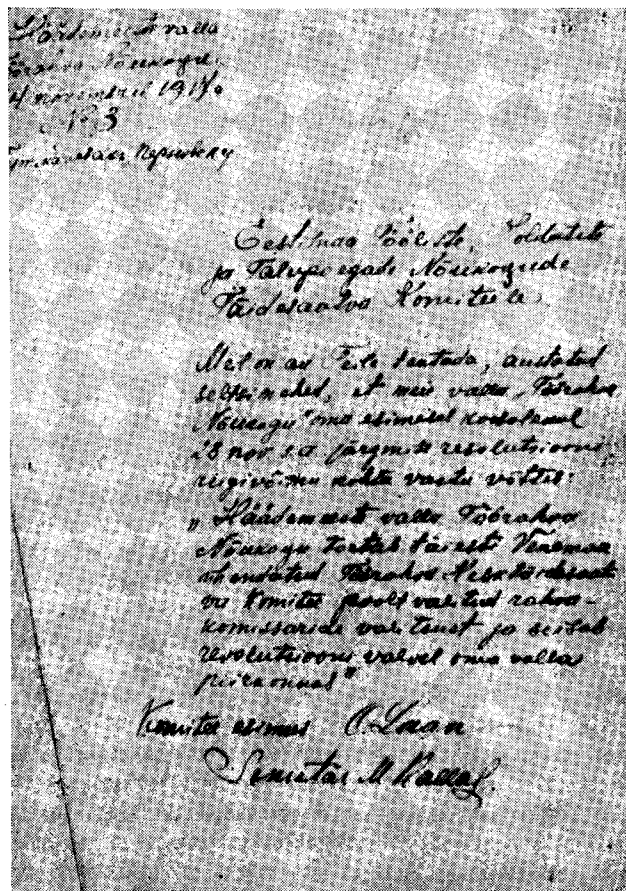 Häädemeeste valla
Töörahva Nõukogu.
novembril 1917.
№ 3
Eestimaa Tööliste, Soldatite
ja Talupoegade Nõukogude
Täidesaatva Komiteele.
Meil on au Teile teatada, austatud
seltsimehed, et meie valla „Töörahva
Nõukogu" oma esimesel koosolekul
28 nov s.a. järgmise resolutsiooni
riigivõimu kohta vastu võttis:
„Häädemeeste valla Töörahva
Nõukogu toetab täiesti Venemaa
Töörahva
Komitee poolt valitud rahva-
komissaride valitsust ja seisab
revolutsiooni valvel oma valla
piirkonnas"
Komitee esimees O. Laan
Sekretär M. Kallas